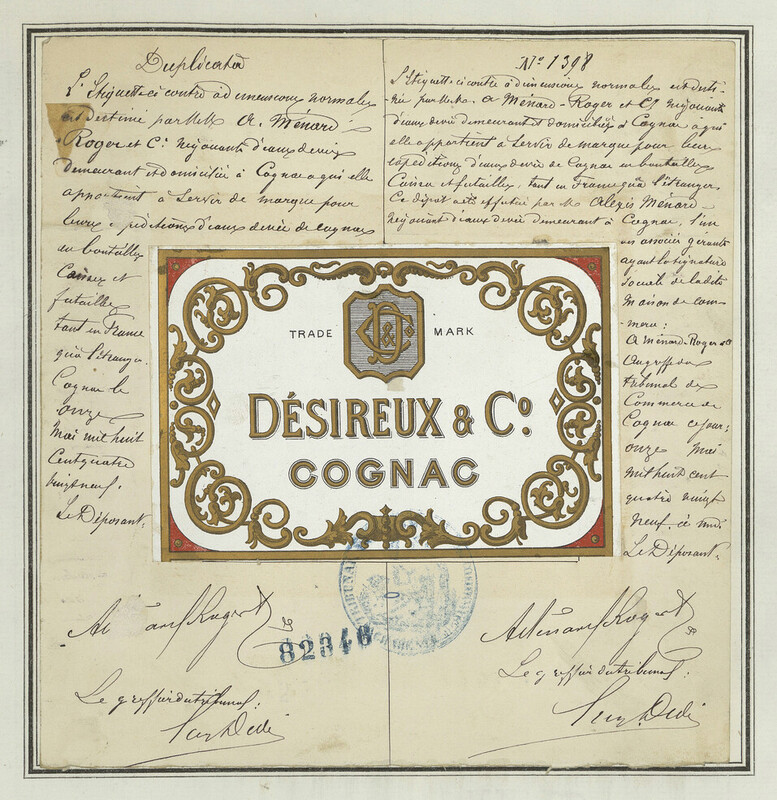 Duplicata
L'Etiquette ci contre à dimensions normales
est destinée par MM. A. Ménard-
Roger et Cⁱᵉ Négociants d'eaux de vie
demeurant et domiciliés à Cognac à qui elle
appartient à servir de marque pour
leurs expéditions d'eaux de vie de Cognac
en bouteilles
Caisses et
futailles
tant en France
qu'à l'étranger.
Cognac le
onze
Mai mil huit
Cent quatre
vingt neuf.
Le Déposant:
Le greffier du tribunal:
Nº 1398
L'Etiquette ci contre à dimensions normales est desti-
née par MM. A Ménard-Roger et Cⁱᵉ Négociants
d'eaux de vie demeurant et domiciliés à Cognac à qui
elle appartient à servir de marque pour leurs
expéditions d'eaux de vie de Cognac en bouteilles
Caisses et futailles, tant en France qu'à l'étranger
Ce dépôt a été effectué par M. Alexis Ménard
Négociant d'eaux de vie demeurant à Cognac, l'un
des associés gérants
ayant la signature
sociale de la dite
Maison de com-
merce:
A Ménard-Roger et Cⁱᵉ
Au greffe du
tribunal de
Commerce de
Cognac ce jour:
onze Mai
mil huit cent
quatre vingt
neuf. à midi
Le Déposant:
Le greffier du tribunal:
TRADE MARK
D & Cº
DÉSIREUX & Cº
COGNAC
82340